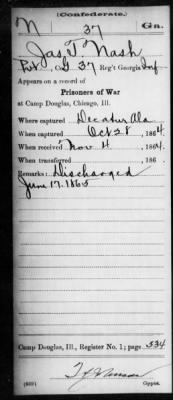 (Confederate.)
N 37 Ga.
Jas T. Nash
Pvt., Co. G 37 Reg't Georgia Inf
Appears on a record of
Prisoners of War
at Camp Douglas, Chicago, Ill.
Where captured Decatur Ala
When captured Oct 28, 1864
When received Nov 4, 1864
When transferred , 186 .
Remarks: Discharged
June 17. 1865
Camp Douglas, Ill., Register No. 1; page 334
Copyist.